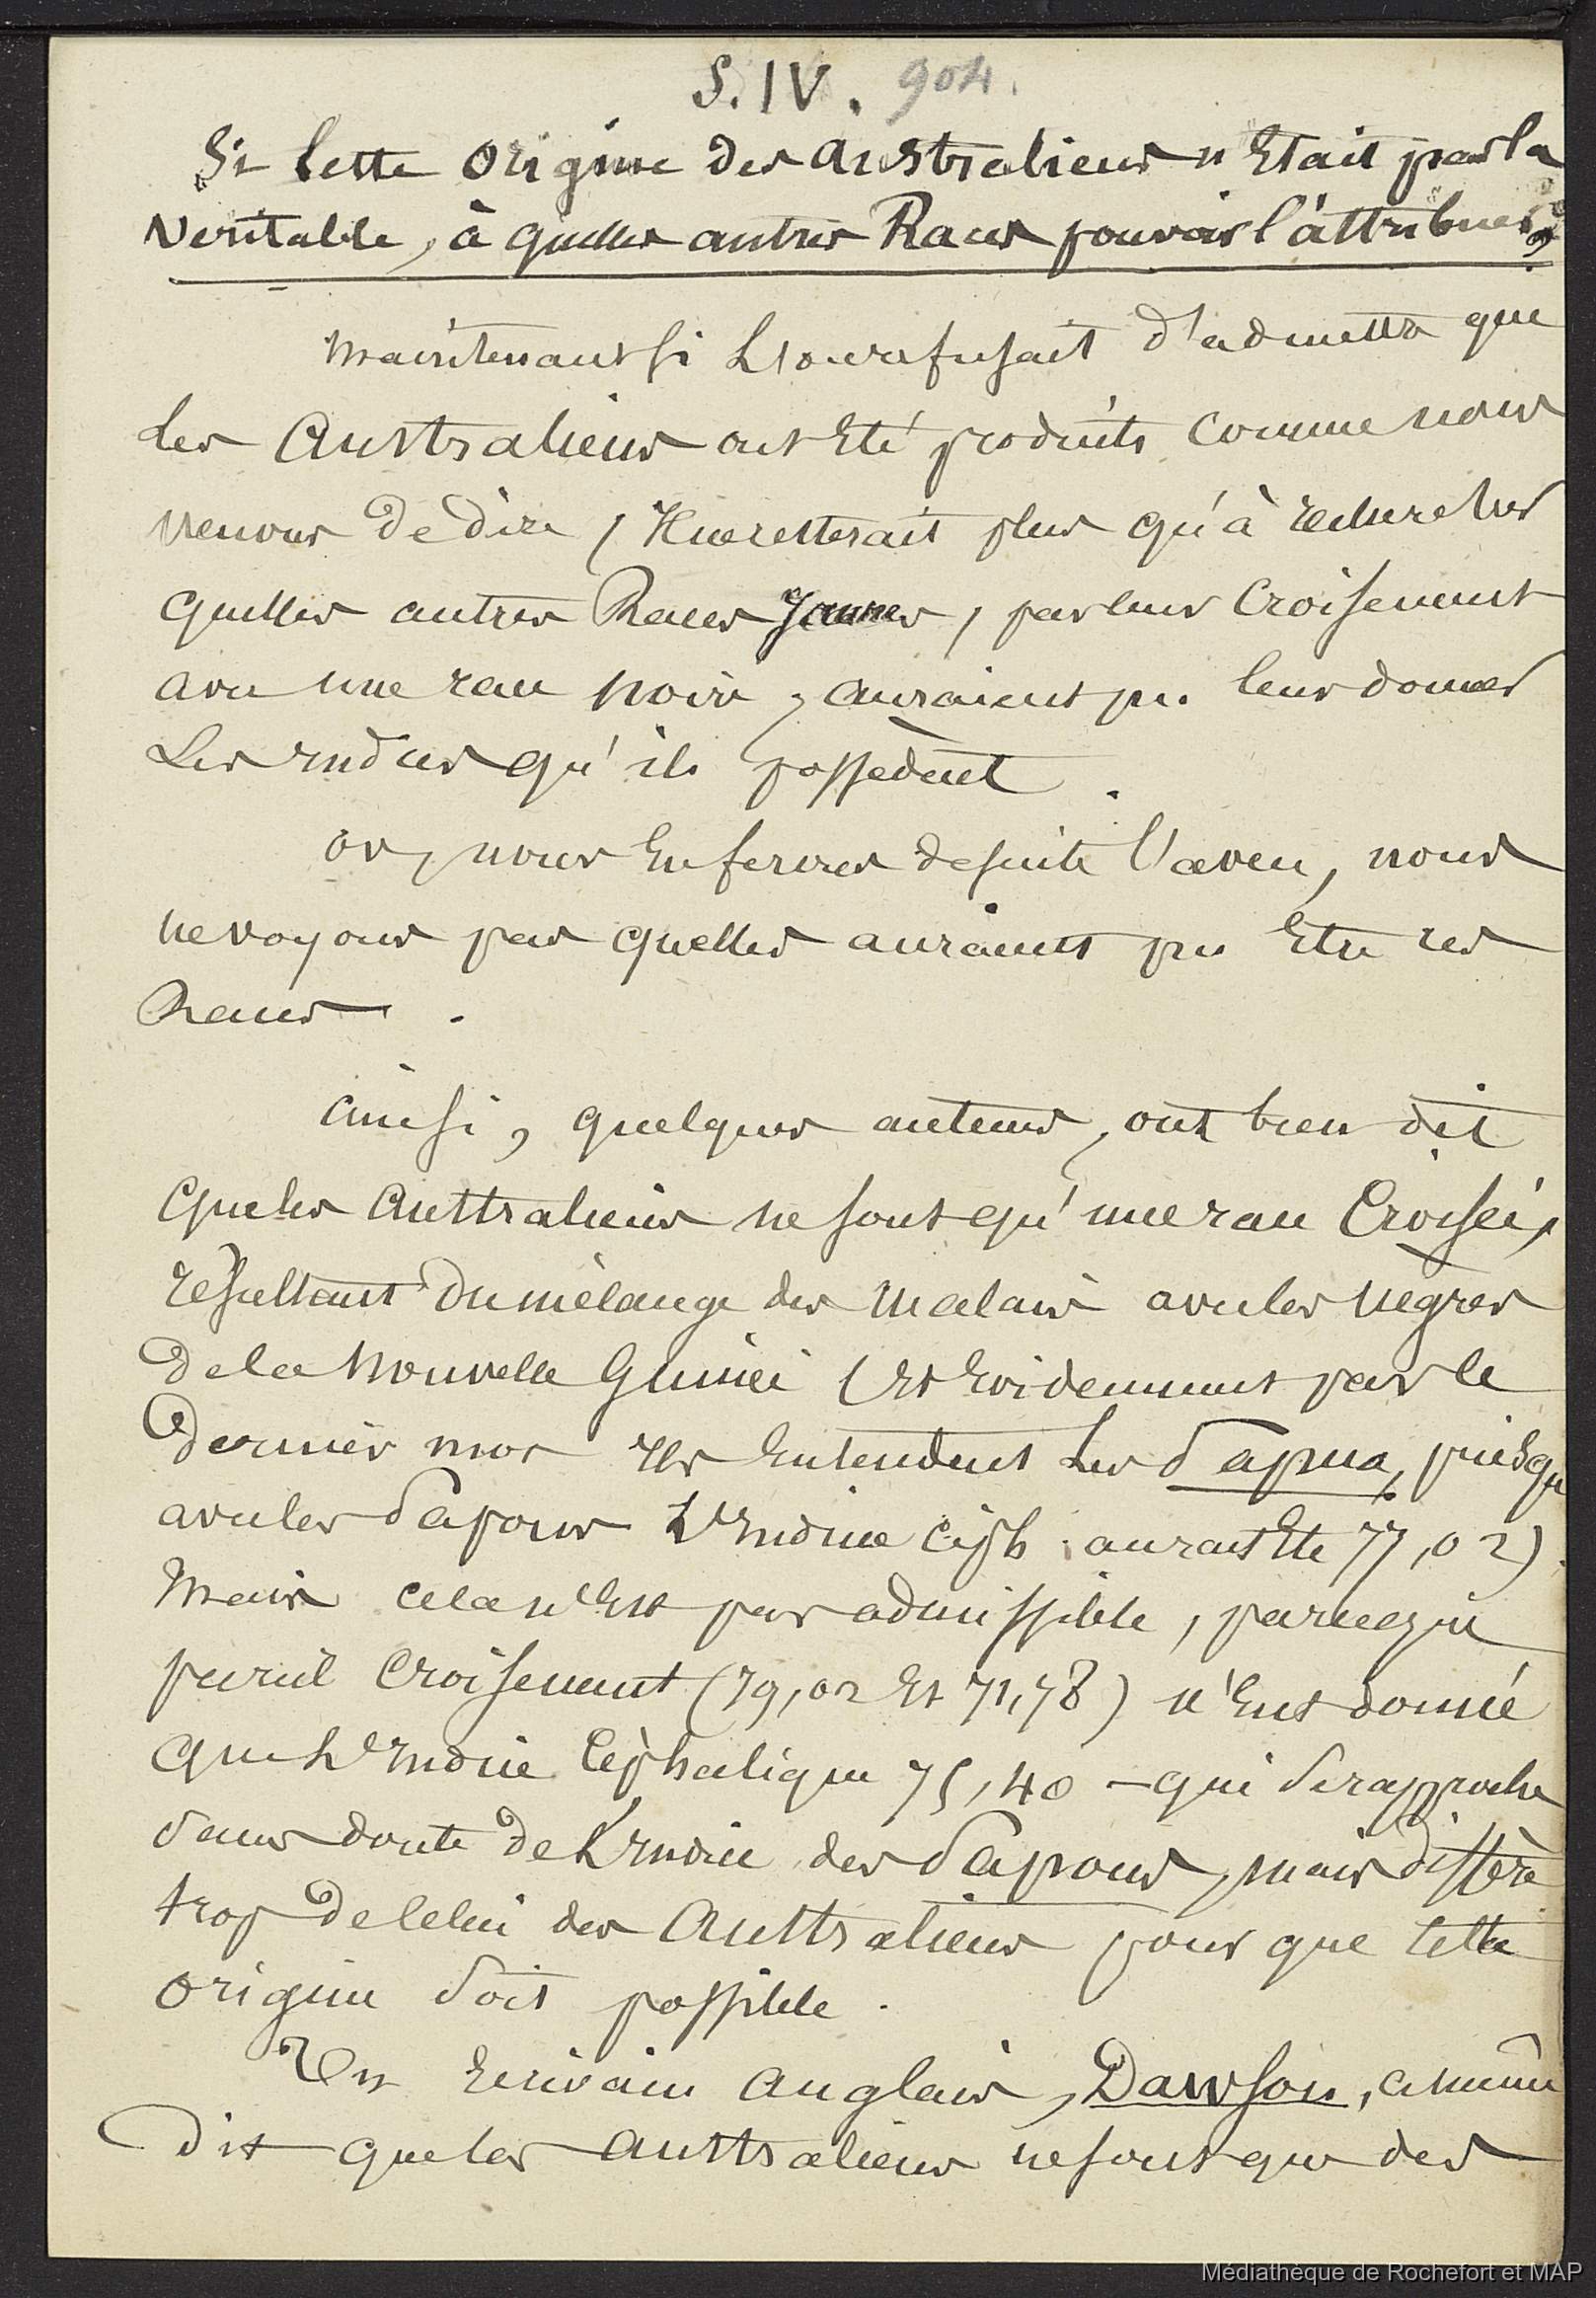 S. IV. 904.
Si Cette origine des australiens n'Etait pas la
Veritable, à quelles autres Races pouvoir l'attribuer?
Maintenant si L'on refusait d'admettre que
Les Australiens ont Eté produits Comme nous
venons de dire, Il ne resterait plus qu'à rechercher
quelles autres Races Jaunes, par leur Croisement
avec une race noire, auraient pu leur donner
Les indices qu'ils possèdent.
or, nous En ferons de suite l'aveu, nous
ne voyons pas quelles auraient pu Etre ces
Races.
ainsi, quelques auteurs, ont bien dit
que les Australiens ne sont qu'une race Croisée,
résultant du mélange des Malais avec les Nègres
de la Nouvelle Guinée (Et Evidemment par le
dernier mot Ils Entendent Les Papua, puisqu
avec les Papous L'Indice Céph. aurait Eté 77,02).
Mais cela n'Est pas admissible, parcequ
pareil Croisement (79,02 Et 71,78) n'Eut donné
que L'Indice Céphalique 75,40 – qui se rapproche
sans doute de L'Indice des Papous, mais diffère
trop de celui des Australiens pour que cette
origine soit possible.
Un Ecrivain Anglais, Dawson, a même
dit que les Australiens ne sont que des
Médiathèque de Rochefort et MAP